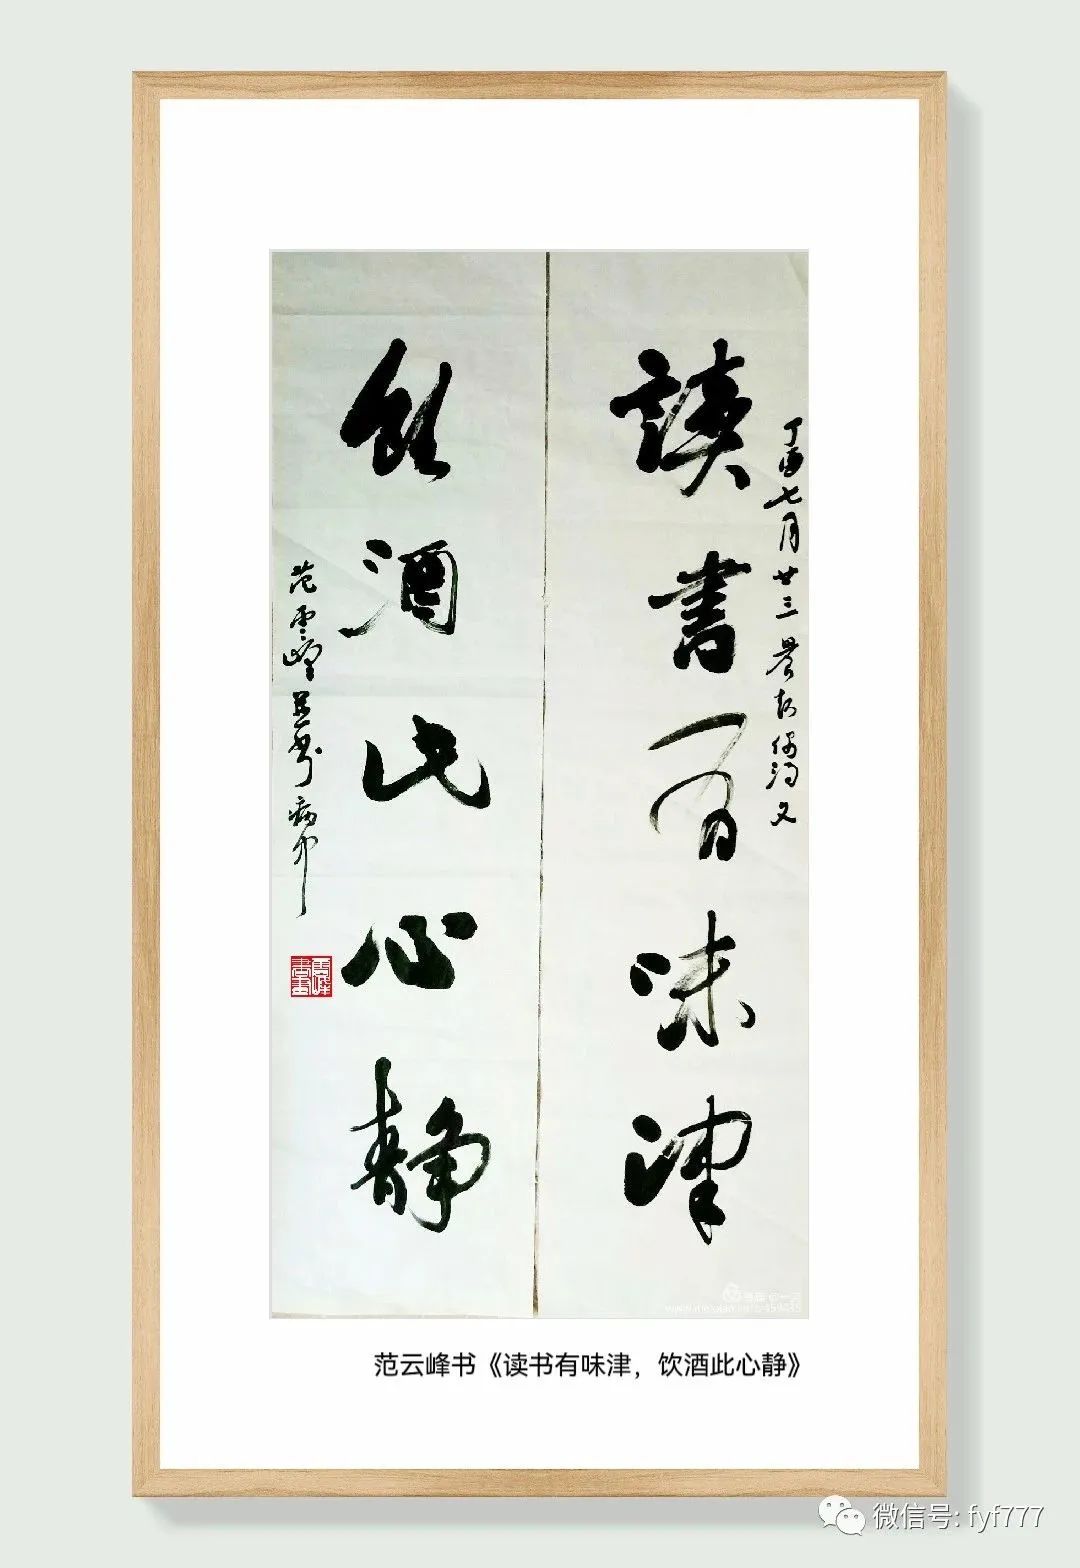 讀書有味津
丁酉七月廿三
飲酒此心静
范雲峰
雲峰書畫
范云峰书《读书有味津，饮酒此心静》
微信号: fyf777